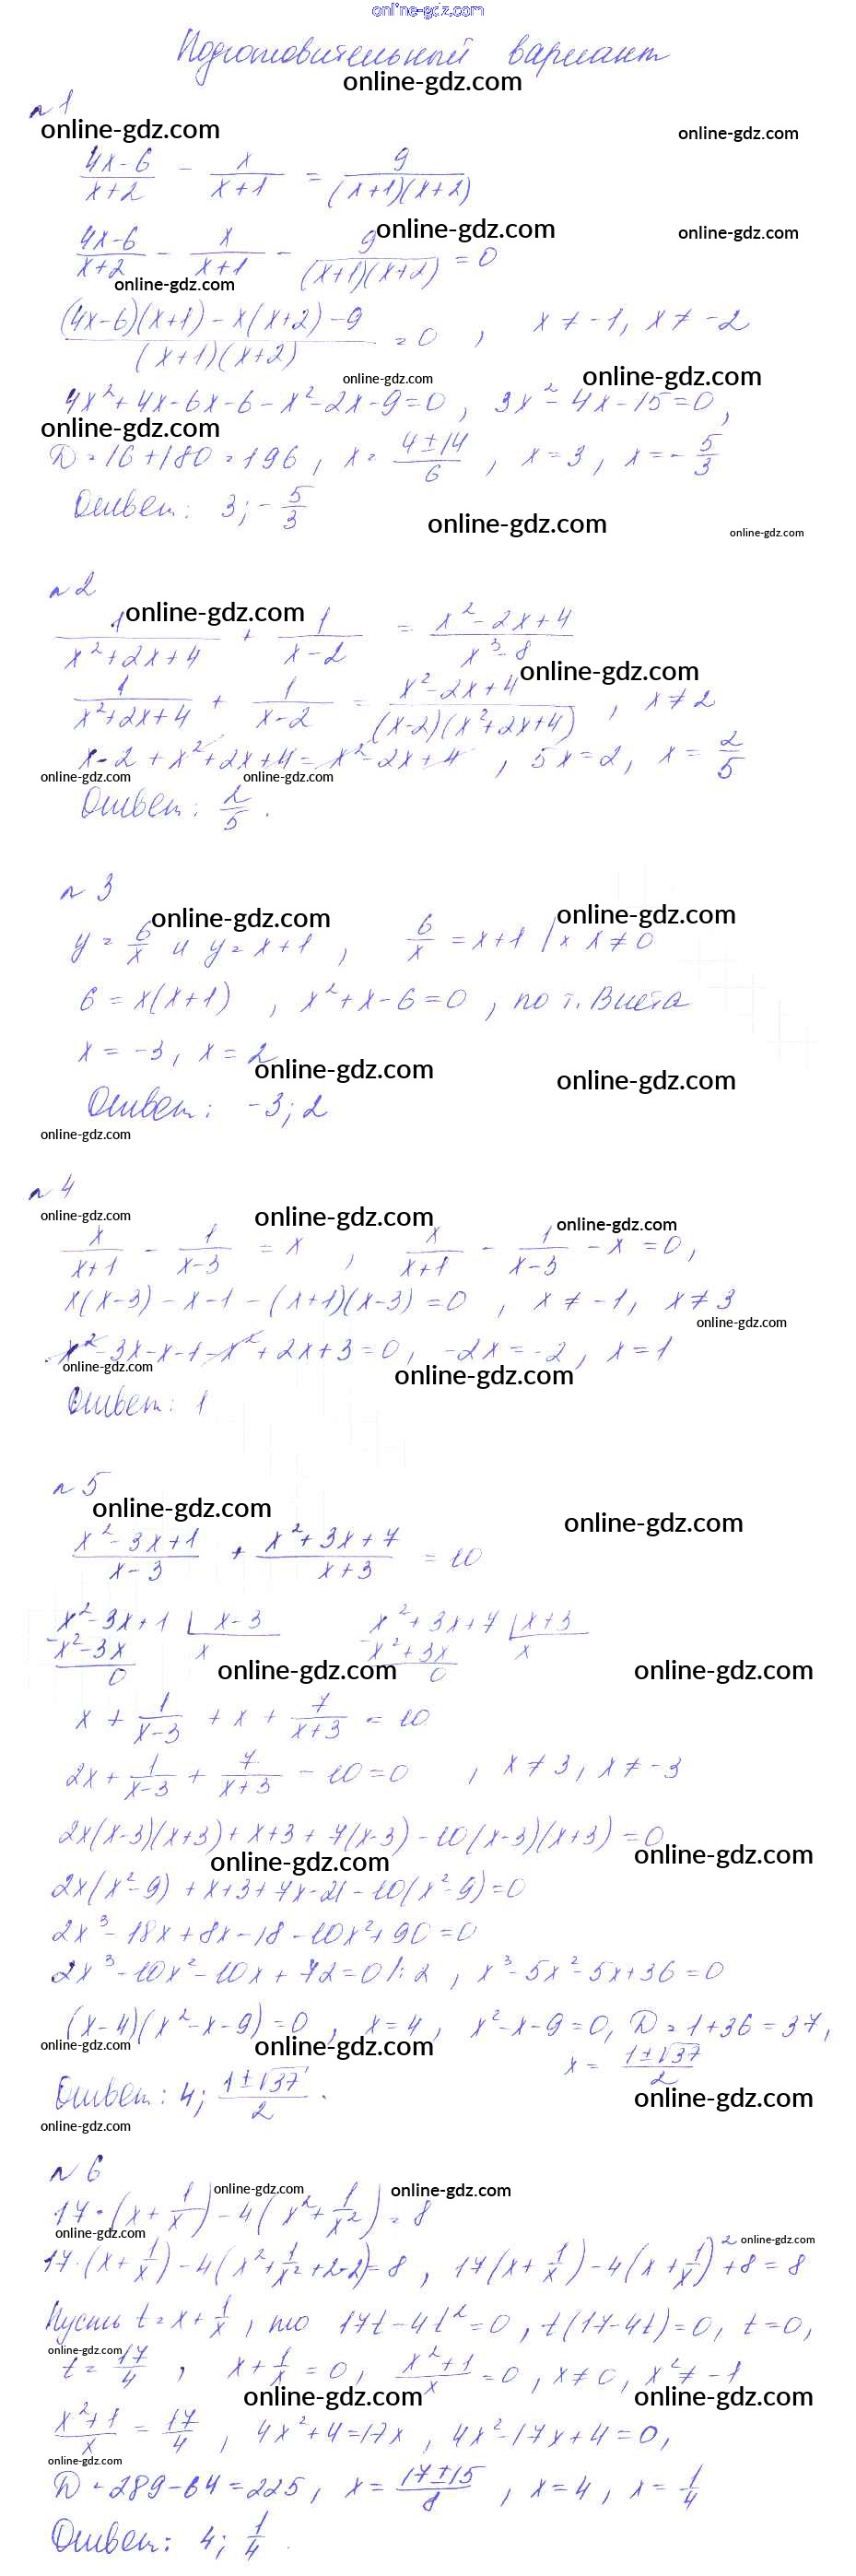 online-gdz.com
Подготовительный вариант
online-gdz.com
№1
online-gdz.com online-gdz.com
(4x-6)/(x+2) - x/(x+1) = 9/((x+1)(x+2))
online-gdz.com online-gdz.com
(4x-6)/(x+2) - x/(x+1) - 9/((x+1)(x+2)) = 0
online-gdz.com
((4x-6)(x+1) - x(x+2) - 9)/((x+1)(x+2)) = 0, x ≠ -1, x ≠ -2
online-gdz.com online-gdz.com
4x²+4x-6x-6-x²-2x-9=0, 3x²-4x-15=0,
online-gdz.com
D=16+180=196, x = (4±14)/6, x=3, x=-5/3
Ответ: 3; -5/3
online-gdz.com online-gdz.com
№2
online-gdz.com
1/(x²+2x+4) + 1/(x-2) = (x²-2x+4)/(x³-8)
online-gdz.com
1/(x²+2x+4) + 1/(x-2) = (x²-2x+4)/((x-2)(x²+2x+4)), x ≠ 2
x-2+x²+2x+4=x²-2x+4, 5x=2, x=2/5
online-gdz.com online-gdz.com
Ответ: 2/5.
№3
online-gdz.com online-gdz.com
y=6/x и y=x+1, 6/x = x+1 |×x≠0
6=x(x+1), x²+x-6=0, по т. Виета
x=-3, x=2
online-gdz.com online-gdz.com
Ответ: -3; 2
online-gdz.com
№4
online-gdz.com online-gdz.com online-gdz.com
x/(x+1) - 1/(x-3) = x, x/(x+1) - 1/(x-3) - x = 0,
x(x-3)-x-1-(x+1)(x-3)=0, x≠-1, x≠3
online-gdz.com
x²-3x-x-1-x²+2x+3=0, -2x=-2, x=1
online-gdz.com online-gdz.com
Ответ: 1
№5
online-gdz.com online-gdz.com
(x²-3x+1)/(x-3) + (x²+3x+7)/(x+3) = 10
x²-3x+1 | x-3 x²+3x+7 | x+3
-x²-3x x -x²+3x x
0 0
online-gdz.com online-gdz.com
x + 1/(x-3) + x + 7/(x+3) = 10
2x + 1/(x-3) + 7/(x+3) - 10 = 0, x≠3, x≠-3
2x(x-3)(x+3)+x+3+7(x-3)-10(x-3)(x+3)=0
online-gdz.com online-gdz.com
2x(x²-9)+x+3+7x-21-10(x²-9)=0
2x³-18x+8x-18-10x²+90=0
2x³-10x²-10x+72=0 |:2, x³-5x²-5x+36=0
(x-4)(x²-x-9)=0, x=4, x²-x-9=0, D=1+36=37,
online-gdz.com online-gdz.com
x = (1±√37)/2
Ответ: 4; (1±√37)/2.
online-gdz.com
online-gdz.com
№6
online-gdz.com online-gdz.com
17·(x+1/x)-4(x²+1/x²)=8
online-gdz.com online-gdz.com
17·(x+1/x)-4(x²+1/x²+2-2)=8, 17(x+1/x)-4(x+1/x)²+8=8
Пусть t=x+1/x, то 17t-4t²=0, t(17-4t)=0, t=0,
online-gdz.com
t=17/4, x+1/x=0, (x²+1)/x=0, x≠0, x²≠-1
online-gdz.com online-gdz.com
(x²+1)/x = 17/4, 4x²+4=17x, 4x²-17x+4=0,
online-gdz.com
D=289-64=225, x=(17±15)/8, x=4, x=1/4
Ответ: 4; 1/4.